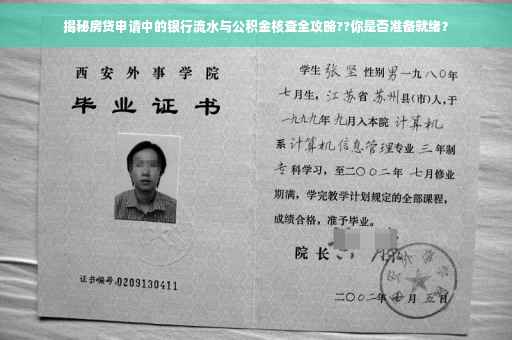 揭秘房贷申请中的银行流水与公积金核查全攻略??你是否准备就绪?
西安外事学院
毕业证书
证书编号:0209130411
学生张坚性别男一九八〇年
七月生,江苏省苏州县(市)人,于
一九九九年九月入本院计算机
系计算机信息管理专业三年制
专科学习,至二〇〇二年七月修业
期满,学完教学计划规定的全部课程,
成绩合格,准予毕业。
院长
二〇〇二年 月五日